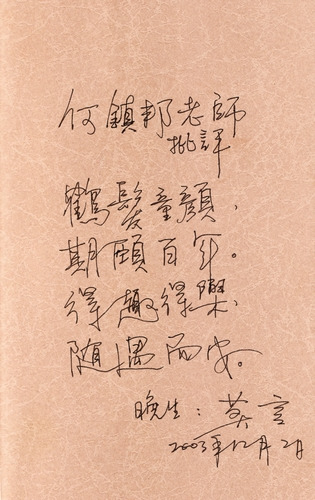 何鎮邦老師
批評
鶴髮童顏,
期頤百年。
得趣得樂,
随遇而安。
晚生:英言
2003年12月2日